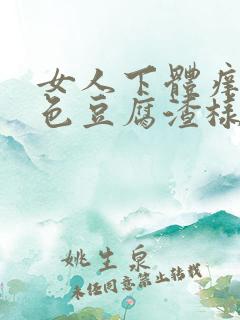 女人下體癢
色豆腐渣樣
姚生泉
未经同意禁止转载